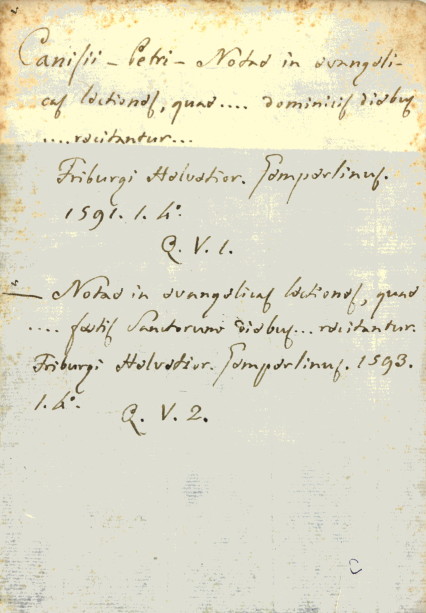 Canisii - Petri - Notae in evangeli-
cas lectiones, quae .... dominicis diebus
.... recitantur ...
Friburgi Helvetior. Gemperlinus.
1591. 1. 4°.
Q. V. 1.
— Notae in evangelicas lectiones, quae
.... festis Sanctorum diebus ... recitantur.
Friburgi Helvetior. Gemperlinus. 1593.
1. 4°.
Q. V. 2.
C